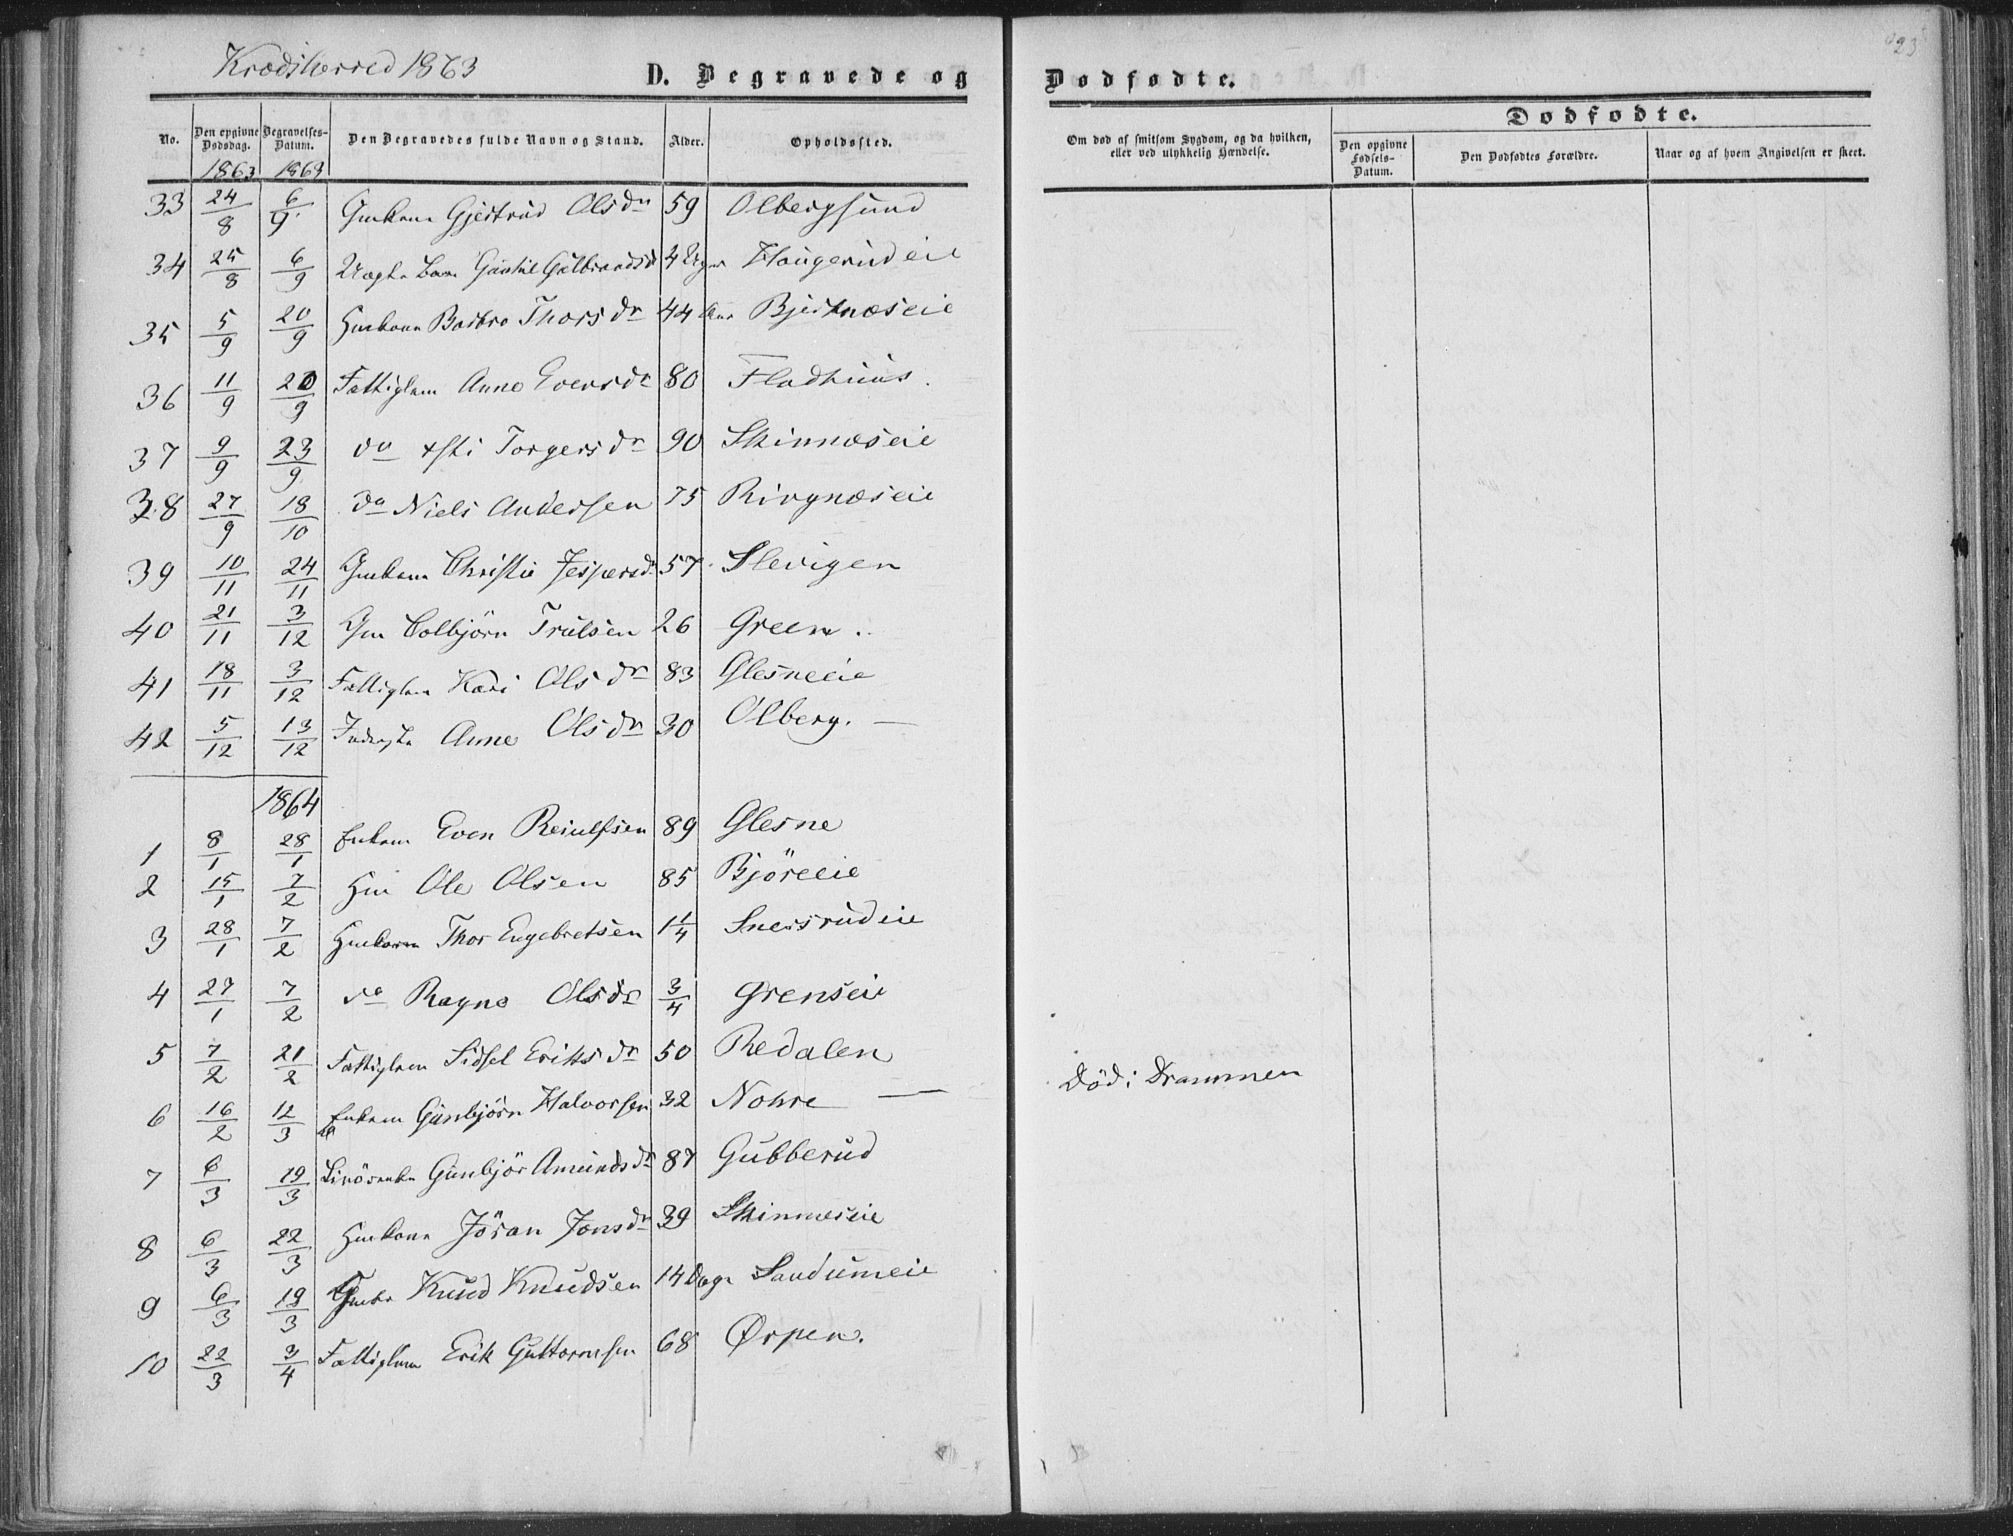 Krødsherred 1863
D. Begravede og
Dødfødte.
23
No. Den opgivne Dødsdag. Begravelses-Datum. Den Begravedes fulde Navn og Stand. Alder. Opholdssted.
Om død af smitsom Sygdom, og da hvilken, eller ved ulykkelig Hændelse.
Dødfødte.
Den opgivne Fødsels-Datum. Den Dødfødtes Forældre. Naar og af hvem Angivelsen er skeet.
1863 1863
33 24/8 6/9 Gmkone Gjertrud Olsdr 59 Olbergsund
34 25/8 6/9 Uægte Barn Gulbrandsd 4 Uger Haugerudeie
35 5/9 20/9 Hmkone Barbro Thorsdr 44 Aar Bjertnæseie
36 11/9 20/9 Fattiglem Anne Evensdr 80 Fladhuus.
37 9/9 23/9 do Torgersdr 90 Skinnæseie
38 27/9 18/10 do Niels Andersen 75 Ringnæseie
39 10/11 24/11 Gmkone Christie Jespersdr 57 Slevigen
40 21/11 3/12 Gm Colbjörn Trulsen 26 Green.
41 18/11 3/12 Fattiglem Kari Olsdr 83 Glesneeie
42 5/12 13/12 Anne Olsdr 30 Olberg. —
1864
1 8/1 28/1 Enkem Even Reiulfsen 89 Glesne
2 15/1 7/2 Hm Ole Olsen 85 Björeeie
3 28/1 7/2 Hmbarn Thor Engebretsen 1 1/4 Snersrudeie
4 27/1 7/2 do Ragne Olsdr 3/4 Grenseie
5 7/2 21/2 Fattiglem Sidsel Eriksdr 50 Redalen
6 16/2 12/3 Enkem Gunbjörn Halvorsen 32 Nohre — Död i Drammen
7 6/3 19/3 Gunbjör Amundsdr 87 Gubberud
8 6/3 22/3 Hmkone Jöran Jonsdr 39 Skinnæseie
9 6/3 19/3 Knud Knudsen 14 Dage Sandumeie
10 22/3 3/4 Fattiglem Erik Guttormsen 68 Ørpen.